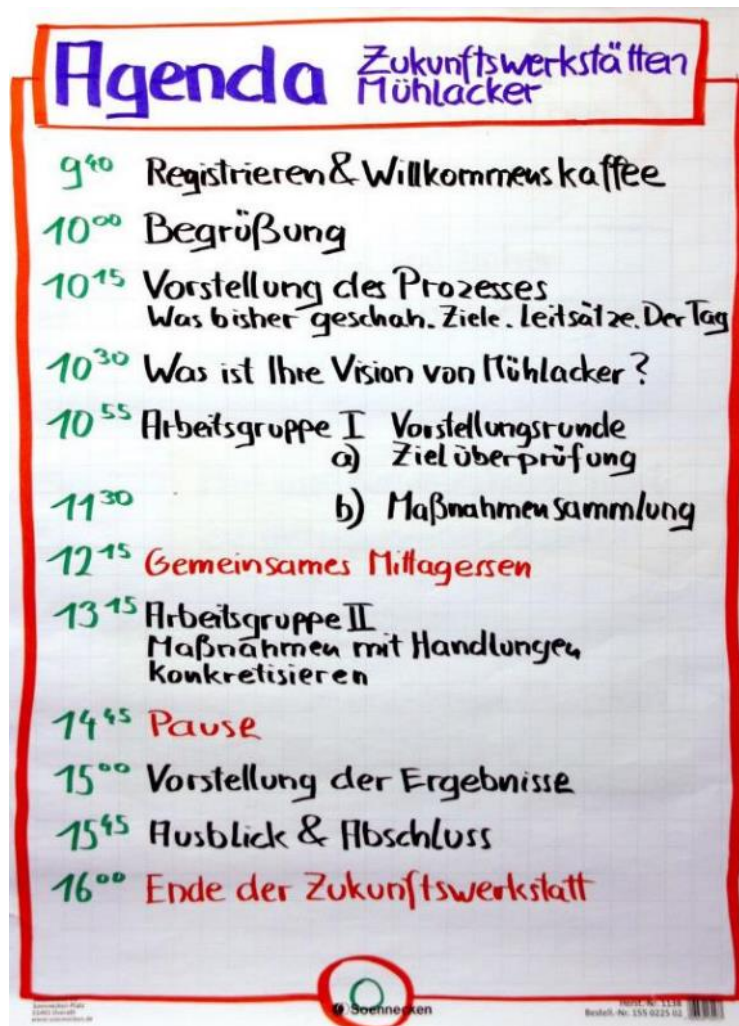 Agenda Zukunftswerkstätten
Mühlacker
9⁴⁰ Registrieren & Willkommenskaffee
10⁰⁰ Begrüßung
10¹⁵ Vorstellung des Prozesses
Was bisher geschah. Ziele. Leitsätze. Der Tag
10³⁰ Was ist Ihre Vision von Mühlacker?
10⁵⁵ Arbeitsgruppe I Vorstellungsrunde
a) Zielüberprüfung
11³⁰ b) Maßnahmensammlung
12¹⁵ Gemeinsames Mittagessen
13¹⁵ Arbeitsgruppe II
Maßnahmen mit Handlungen
konkretisieren
14⁴⁵ Pause
15⁰⁰ Vorstellung der Ergebnisse
15⁴⁵ Ausblick & Abschluss
16⁰⁰ Ende der Zukunftswerkstatt
Soennecken
Bestell.-Nr. 155 0225 02